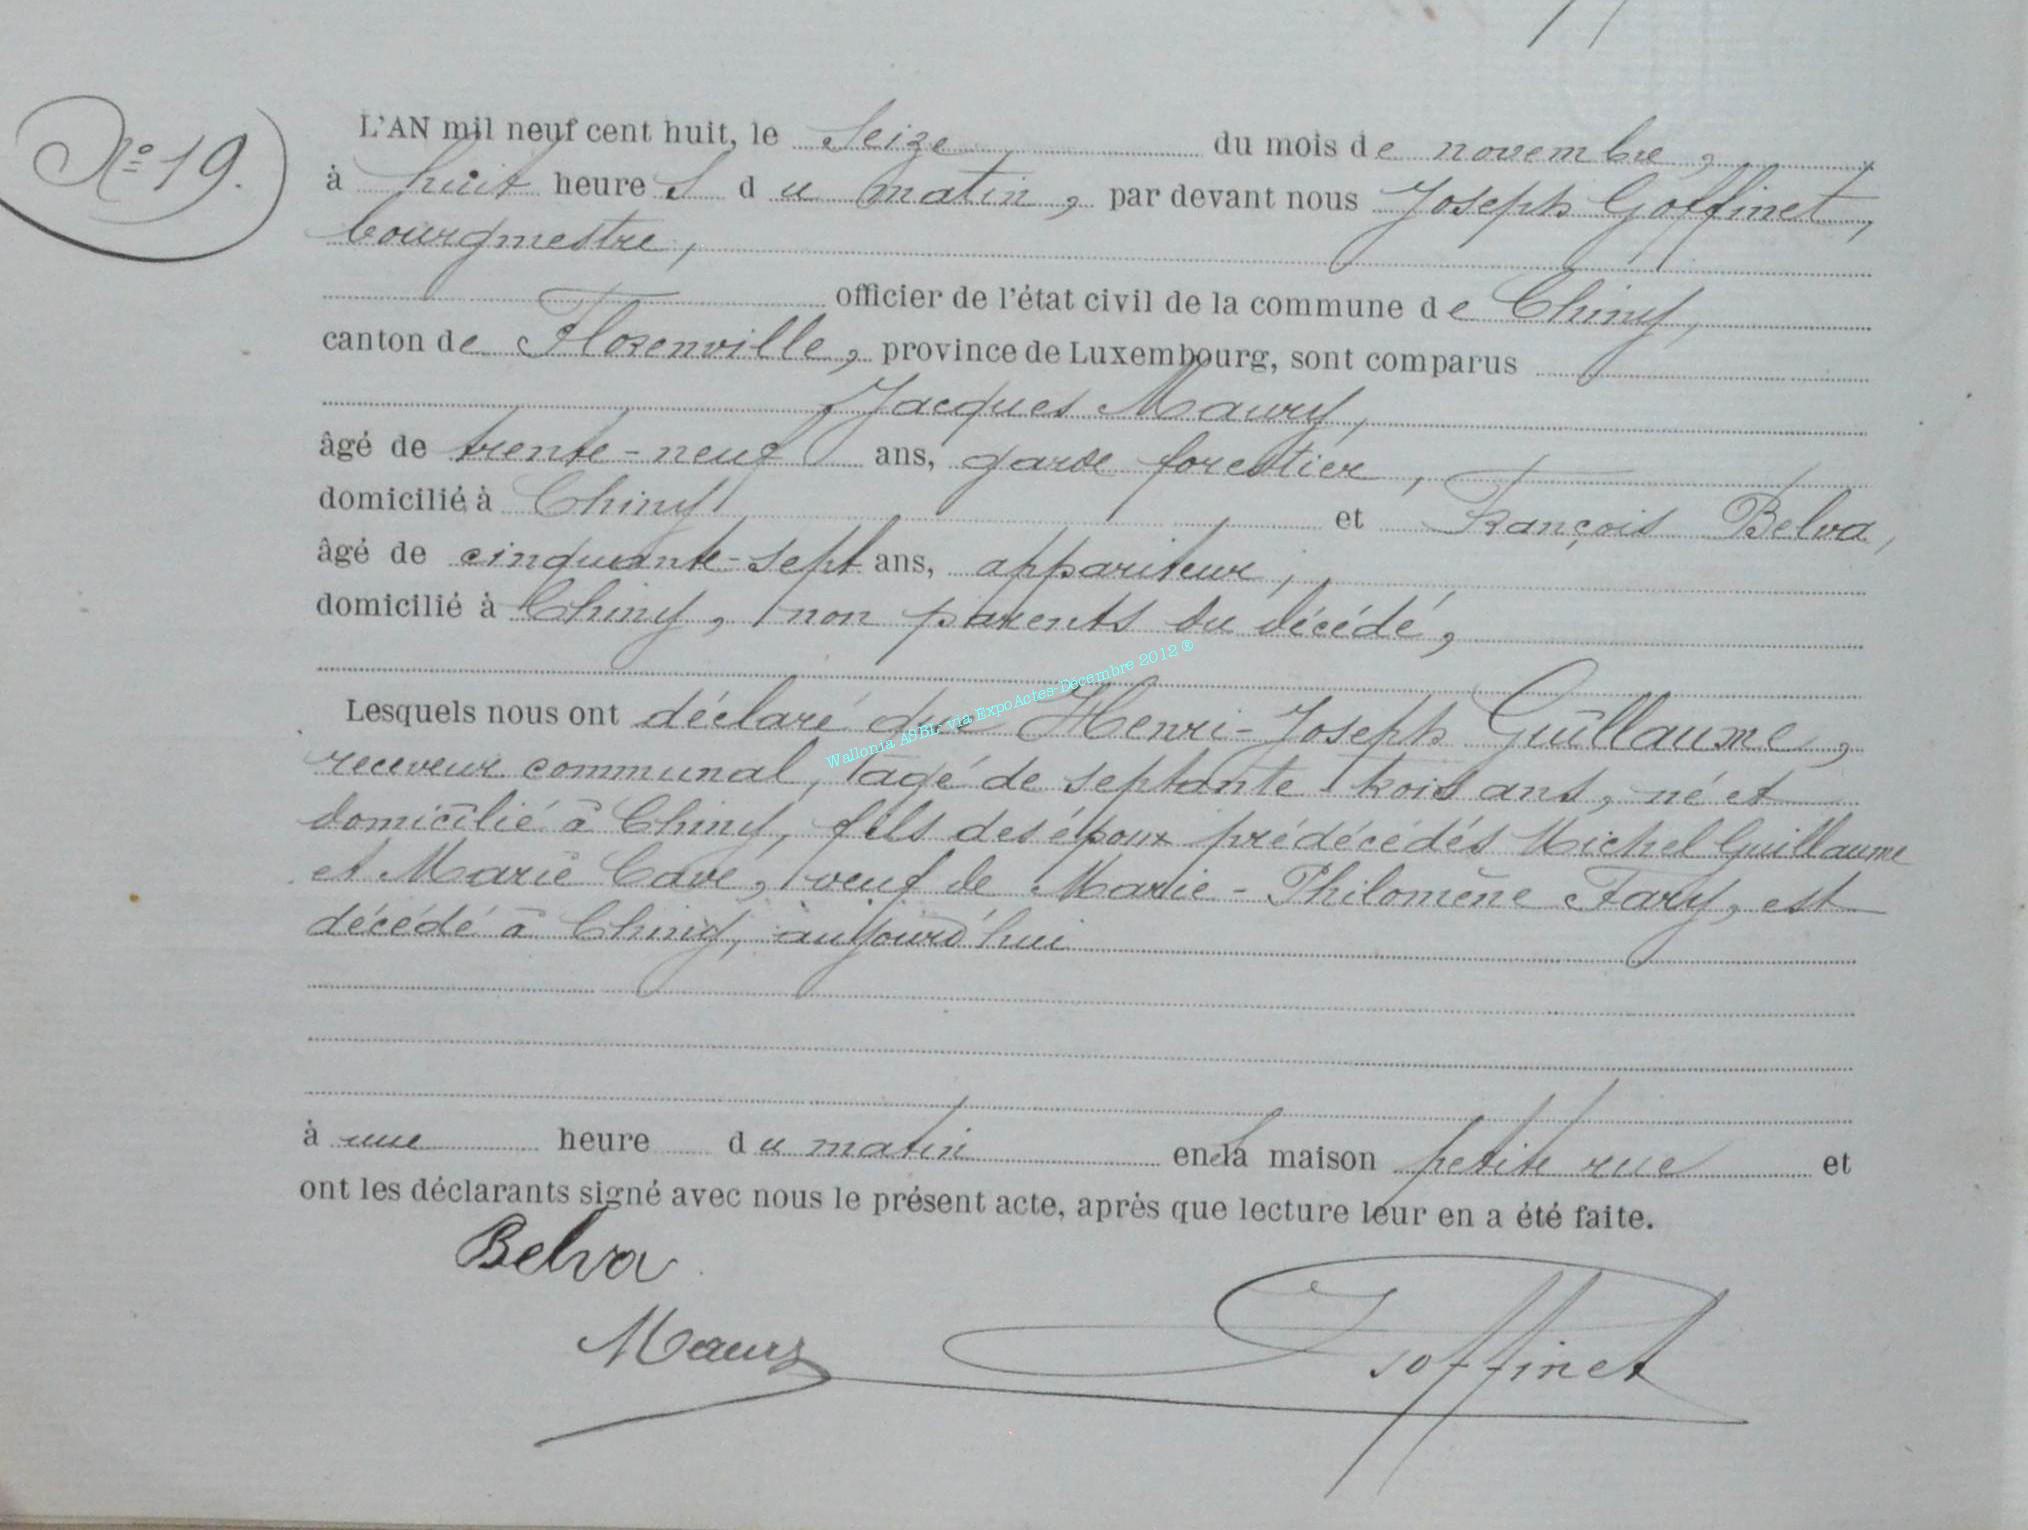 N° 19.
L'AN mil neuf cent huit, le Seize du mois de novembre,
à huit heures du matin, par devant nous Joseph Goffinet,
bourgmestre,
officier de l'état civil de la commune de Chiny,
canton de Florenville, province de Luxembourg, sont comparus
Jacques Maury,
âgé de trente-neuf ans, garde forestier,
domicilié à Chiny et François Belva,
âgé de cinquante-sept ans, appariteur,
domicilié à Chiny, non parents du décédé,
Lesquels nous ont déclaré que Henri-Joseph Guillaume,
receveur communal, âgé de septante trois ans, né et
domicilié à Chiny, fils des époux prédécédés Michel Guillaume
et Marie Cavé, veuf de Marie-Philomène Fary, est
décédé à Chiny, aujourd'hui
à une heure du matin en la maison petite rue et
ont les déclarants signé avec nous le présent acte, après que lecture leur en a été faite.
Belva
Maury
Goffinet
Wallonia ASBL via ExpoActes-Décembre 2012 ®